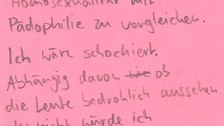 Homosexualität mit
Pädophilie zu vergleichen.
Ich wäre schockiert.
Abhängig davon ob
die Leute bedrohlich aussehen
würde ich